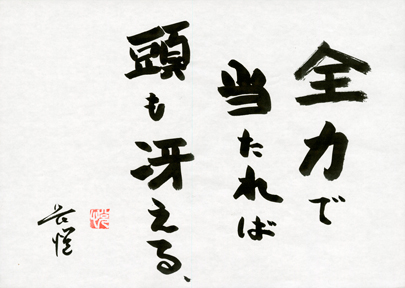 全力で
当たれば
頭も冴える、